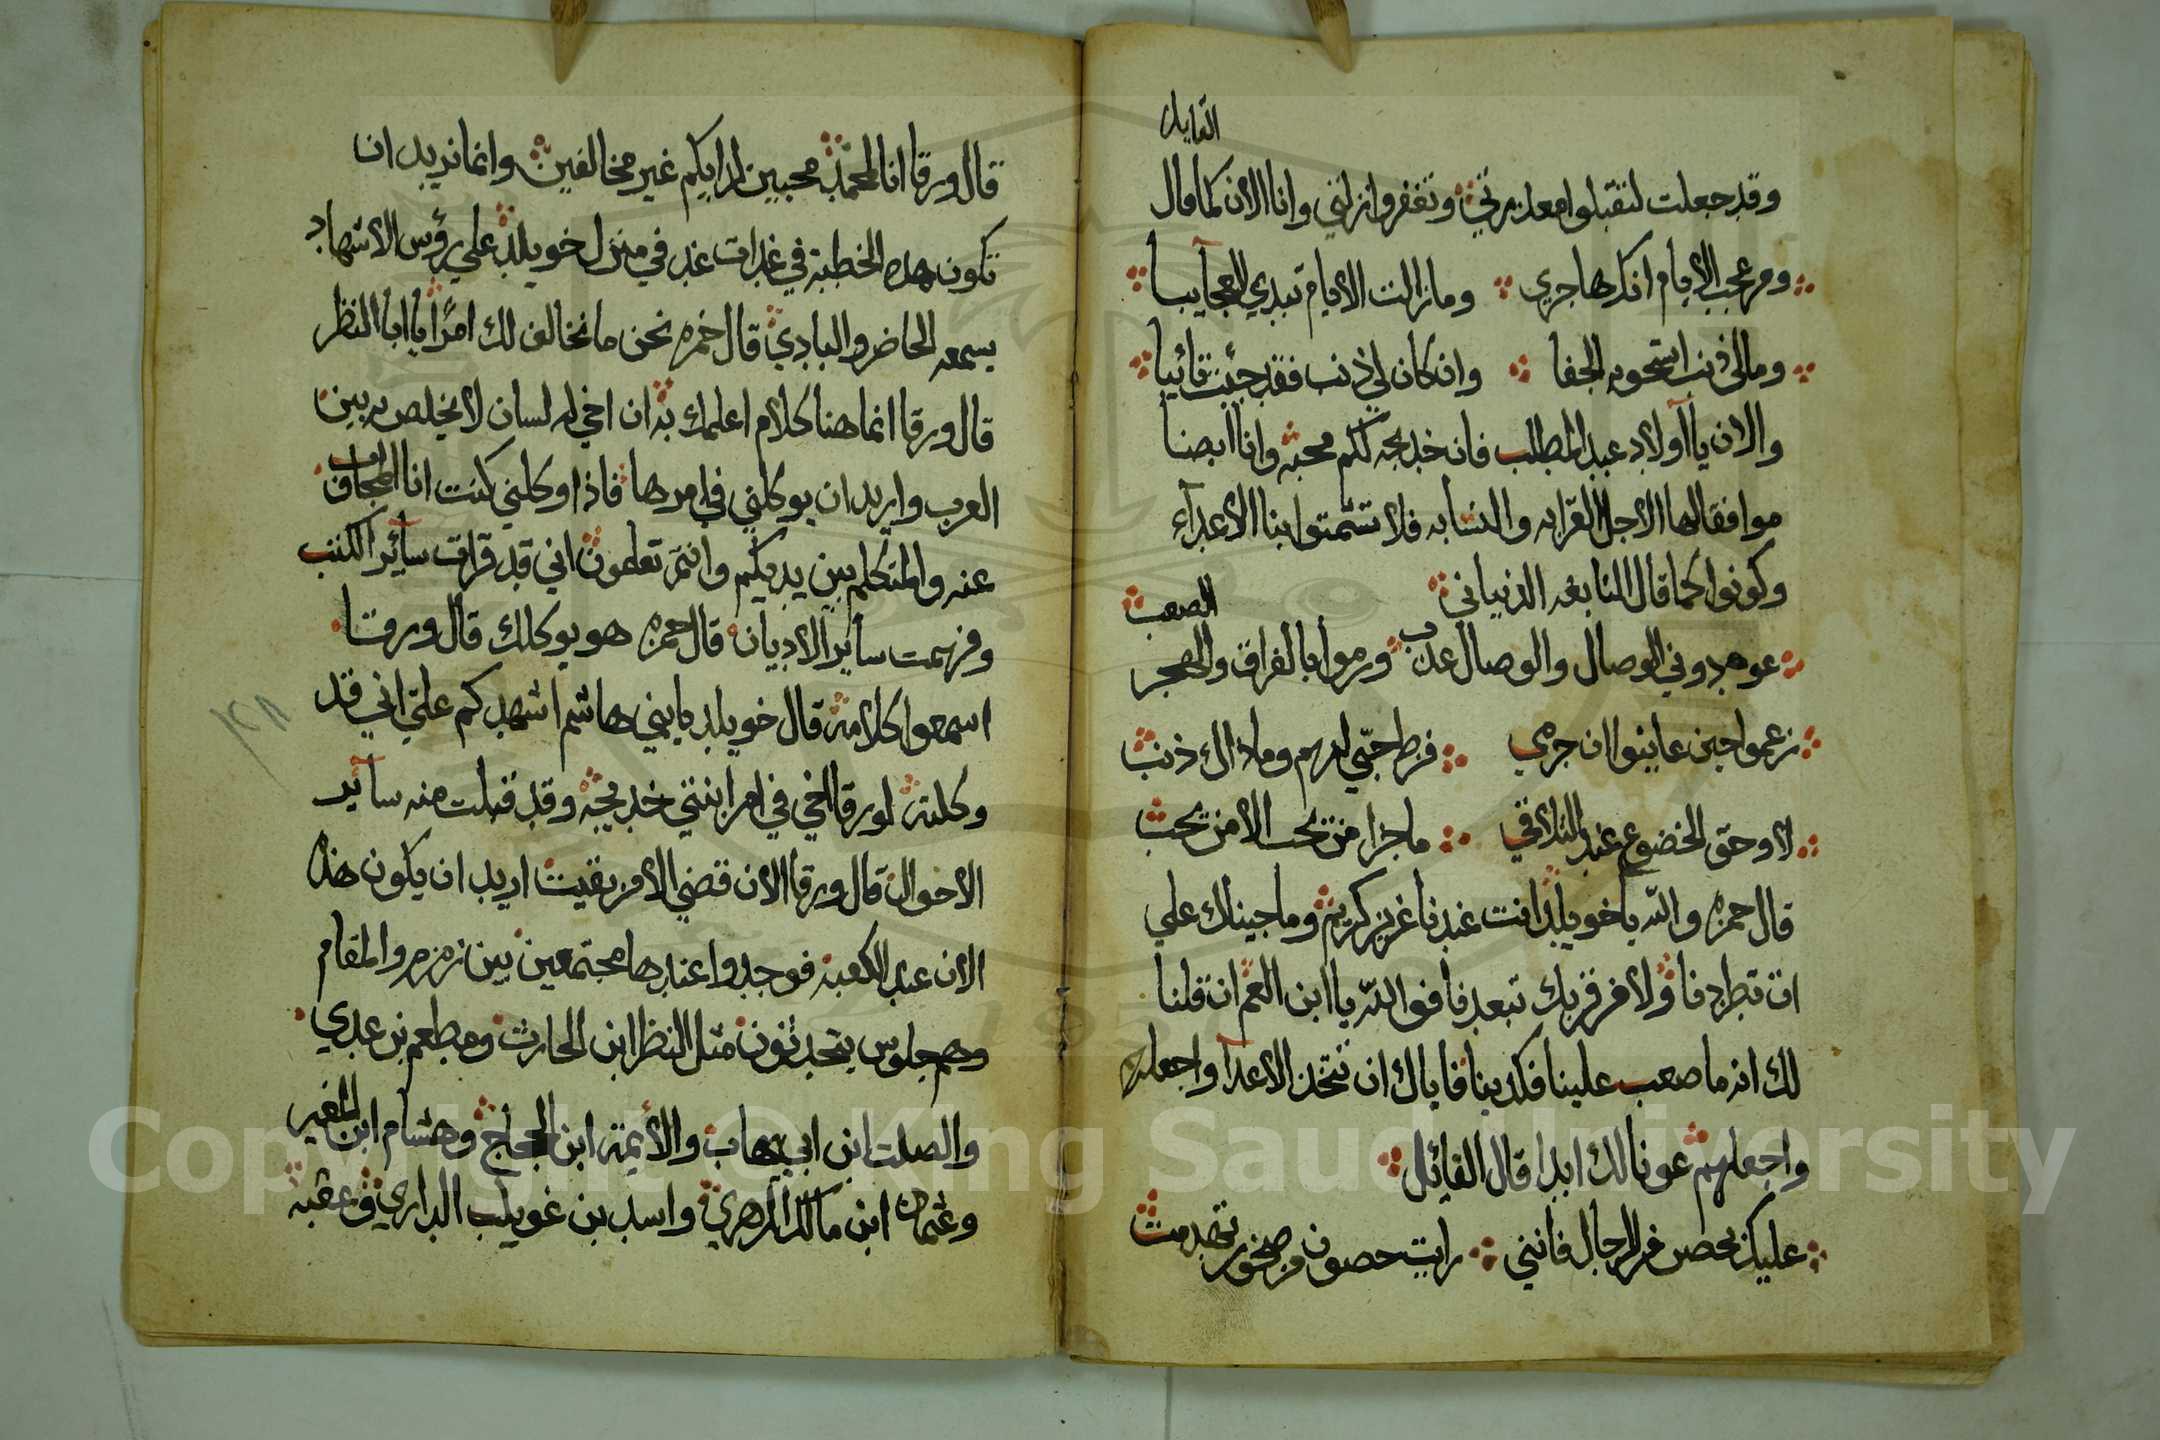 القايل
وقد جعلت لتقبلوا معذرتي وتغفروا زلتي وانا الان كما قال
ومن عجب الايام انك هاجري وما زالت الايام تبدي العجآيبا
ومالي ذنب استحق به الجفا وان كان لي ذنب فقد جئت تائبا
والان يا آولاد عبد المطلب فان خديجه لكم محبه وانا ايضا
موافقا لها الاجل القرابه والنسابه فلا تشمتوا بنا الاعدآء
وكونوا كما قال النابغه الذبياني
الصعب
عوهدوني الوصال والوصال عذب ورموا بالفراق والهجر
زعموا حين عاينوا ان جرمي فرط حبّي لهم وما ذاك ذنب
لا وحق الخضوع عند التلاقي ما جزا من يحب الا من يحب
قال حمزه والله يا خويلد انت عندنا عزيز كريم وما جيناك علي
ان تطردنا ولا من قربك تبعدنا فو الله يا ابن العم ان قلنا
لك انه ما صعب علينا فكدبنا فاياك ان تتخذ الاعدآ واجعله
واجعلهم عونا لك ابدا قال القائل
عليك بحصن من الرجال فانني رايت حصون من صخور تهدمت
قال ورقا انا لمحمد محبين لرايكم غير مخالفين وانما نريد ان
تكون هذه الخطبة في غدات غد في منزل خويلد علي رؤس الاشهاد
يسمعه الحاضر والبادي قال حمزه نحن ما نخالف لك امرًا يا ابا النظر
قال ورقا انما هنا كلام اعلمك به ان اخي له لسان لا يخلص به بين
العرب واريد ان يوكلني في امرها فاذا وكلني كنت انا المجاف
عنه والمتكلم بين يديكم وانتم تعلمون اني قد قرات سآئر الكتب
وفهمت سآير الاديان قال حمزه هو يوكلك قال ورقا
اسمعوا كلامه قال خويلد يا بني هاشم اشهدكم علي اني قد
وكلته لورقا اخي في امر ابنتي خديجه وقد قبلت منه سآئر
الاحوال قال ورقا الان قضي الامر بقيت اريد ان يكون هذا
الان عند الكعبه فوجدوا عندها مجتمعين بين زمزم والمقام
وهم جلوس يتحدثون مثل النظر ابن الحارث ومطعم بن عدي
والصلت ابن ابي يهاب والأيمة ابن الحجاج وهشام ابن المغير
وعثمان ابن مالك الزهري واسد بن غويلب الداري وعقبه
Copyright © King Saud University